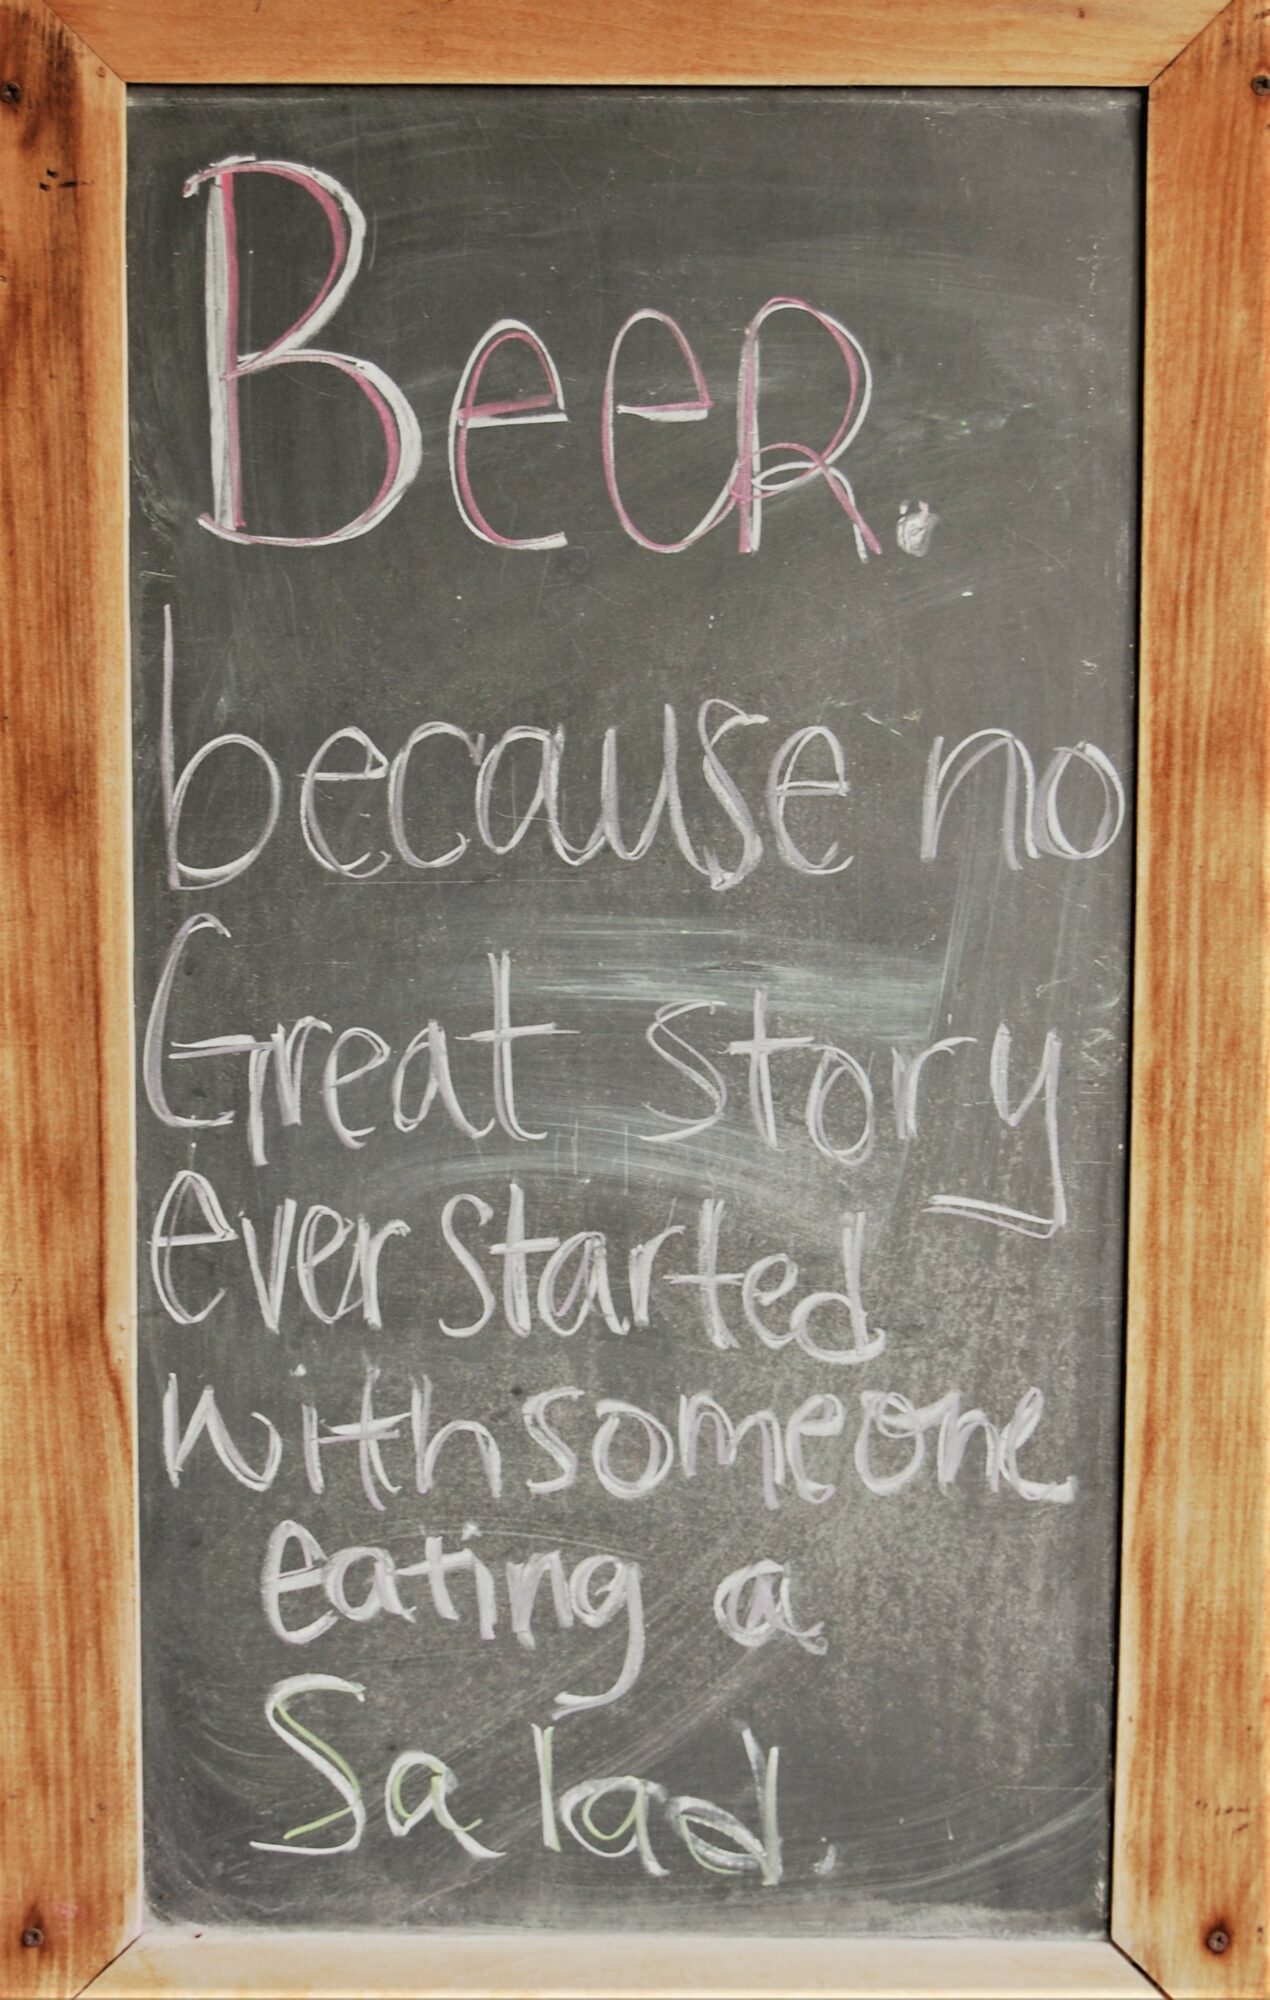 BeeR.
because no
Great story
ever started
with someone
eating a
Salad.